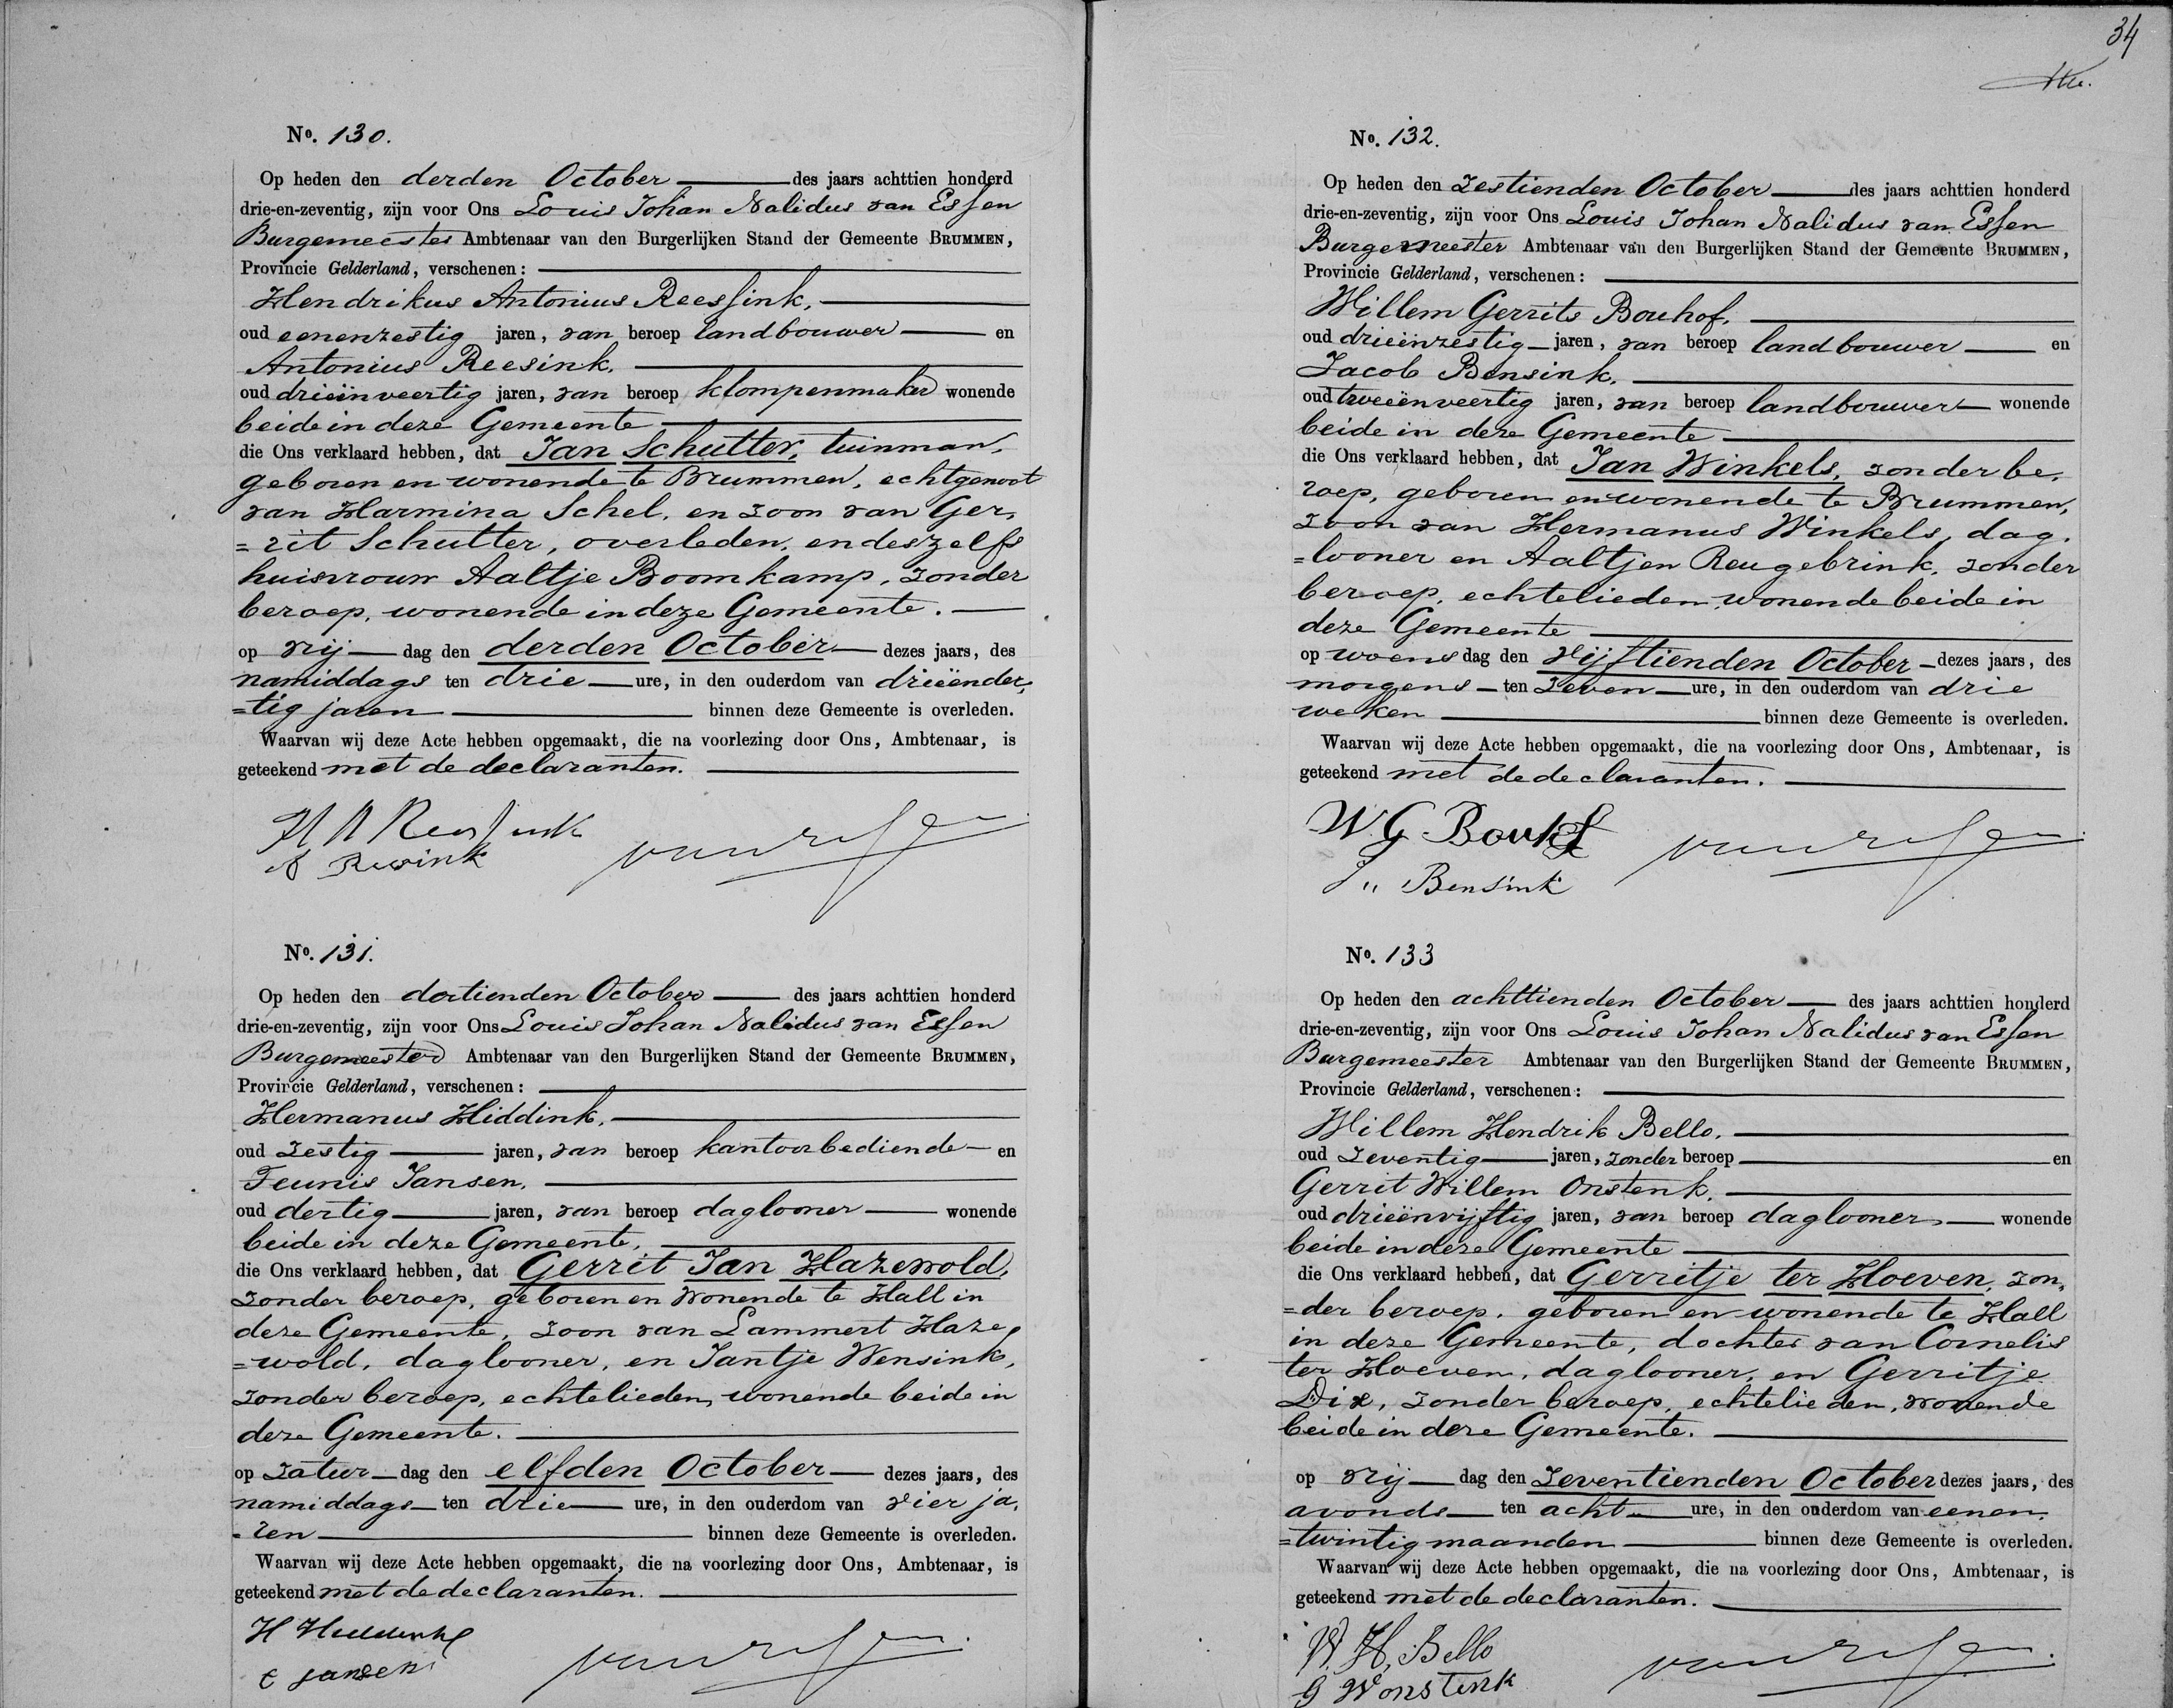 No. 130.
Op heden den derden October des jaars achttien honderd
drie-en-zeventig, zijn voor Ons Louis Johan Nalidus van Essen
Burgemeester Ambtenaar van den Burgerlijken Stand der Gemeente BRUMMEN,
Provincie Gelderland, verschenen:
Hendrikus Antonius Reessink,
oud eenenzestig jaren, van beroep landbouwer en
Antonius Reesink,
oud drieënveertig jaren, van beroep klompenmaker wonende
beide in deze Gemeente
die Ons verklaard hebben, dat Jan Schutter, tuinman,
geboren en wonende te Brummen, echtgenoot
van Harmina Schel, en zoon van Ger,
=rit Schutter, overleden, en deszelfs
huisvrouw Aaltje Boomkamp, zonder
beroep, wonende in deze Gemeente.
op vrij dag den derden October dezes jaars, des
namiddags ten drie ure, in den ouderdom van drieënder,
=tig jaren binnen deze Gemeente is overleden.
Waarvan wij deze Acte hebben opgemaakt, die na voorlezing door Ons, Ambtenaar, is
geteekend met de declaranten.
H A Reessink
A Resink van Essen
No. 131.
Op heden den dertienden October des jaars achttien honderd
drie-en-zeventig, zijn voor Ons Louis Johan Nalidus van Essen
Burgemeester Ambtenaar van den Burgerlijken Stand der Gemeente BRUMMEN,
Provincie Gelderland, verschenen:
Hermanus Hiddink,
oud zestig jaren, van beroep kantoorbediende en
Teunis Jansen,
oud dertig jaren, van beroep daglooner wonende
beide in deze Gemeente,
die Ons verklaard hebben, dat Gerrit Jan Hazewold,
zonder beroep, geboren en wonende te Hall in
deze Gemeente, zoon van Lammert Haze,
=wold, daglooner, en Jantje Wensink,
zonder beroep, echtelieden, wonende beide in
deze Gemeente.
op Zatur dag den elfden October dezes jaars, des
namiddags ten drie ure, in den ouderdom van vier ja,
=ren binnen deze Gemeente is overleden.
Waarvan wij deze Acte hebben opgemaakt, die na voorlezing door Ons, Ambtenaar, is
geteekend met de declaranten.
H Hiddink
jansen van Essen
34
No. 132.
Op heden den Zestienden October des jaars achttien honderd
drie-en-zeventig, zijn voor Ons Louis Johan Nalidus van Essen
Burgemeester Ambtenaar van den Burgerlijken Stand der Gemeente BRUMMEN,
Provincie Gelderland, verschenen:
Willem Gerrits Bouhof,
oud drieënzestig jaren, van beroep landbouwer en
Jacob Bensink,
oud tweeënveertig jaren, van beroep landbouwer wonende
beide in deze Gemeente
die Ons verklaard hebben, dat Jan Winkels, zonder be,
roep, geboren en wonende te Brummen,
zoon van Hermanus Winkels, dag,
=looner en Aaltjen Reugebrink, zonder
beroep, echtelieden, wonende beide in
deze Gemeente
op woens dag den vijftienden October dezes jaars, des
morgens ten Zeven ure, in den ouderdom van drie
weken binnen deze Gemeente is overleden.
Waarvan wij deze Acte hebben opgemaakt, die na voorlezing door Ons, Ambtenaar, is
geteekend met de declaranten.
W G Bouhof
J " Bensink van Essen
No. 133
Op heden den achttienden October des jaars achttien honderd
drie-en-zeventig, zijn voor Ons Louis Johan Nalidus van Essen
Burgemeester Ambtenaar van den Burgerlijken Stand der Gemeente BRUMMEN,
Provincie Gelderland, verschenen:
Willem Hendrik Bello,
oud Zeventig jaren, zonder beroep en
Gerrit Willem Onstenk,
oud drieënvijftig jaren, van beroep daglooner wonende
beide in deze Gemeente
die Ons verklaard hebben, dat Gerritje ter Hoeven, zon,
=der beroep, geboren en wonende te Hall
in deze Gemeente, dochter van Cornelis
ter Hoeven, daglooner, en Gerritje
Dix, zonder beroep, echtelieden, wonende
beide in deze Gemeente.
op vrij dag den Zeventienden October dezes jaars, des
avonds ten acht ure, in den ouderdom van eenen,
=twintig maanden binnen deze Gemeente is overleden.
Waarvan wij deze Acte hebben opgemaakt, die na voorlezing door Ons, Ambtenaar, is
geteekend met de declaranten.
W. H, Bello
G W onstenk van Essen